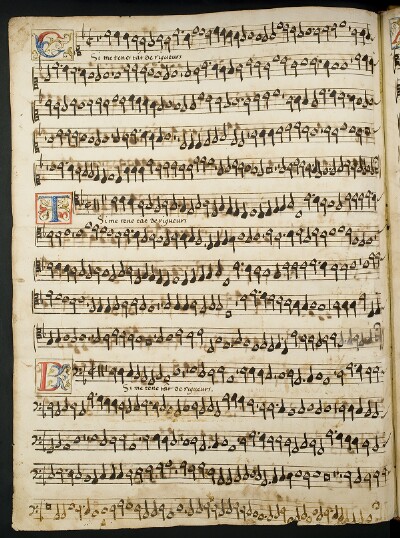 C
Si me tene tat de rigueurs
T
Si me tene tat de rigueurs
B
Si me tene tat de rigueurs.